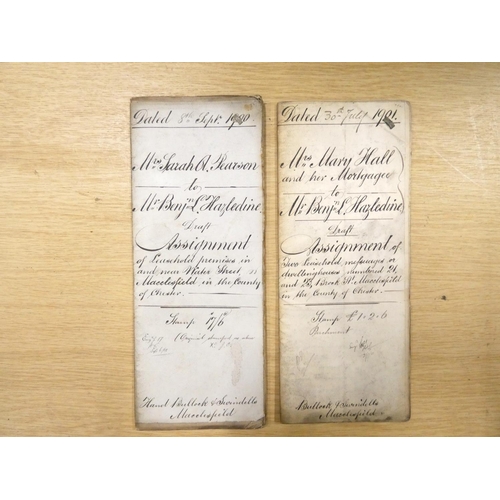 Dated 8th Sept. 1900
Mrs Sarah A. Pearson
to
Mr Benjn L. Hazledine
Draft
Assignment
of leasehold premises in
and near Water Street, in
Macclesfield in the County
of Chester.
Stamp 17/6
Hand Bullock & Swindells
Macclesfield
Dated 30th July 1901.
Mrs Mary Hall
and her Mortgagee
to
Mr Benjn L. Hazledine
Draft
Assignment of
two leasehold messuages or
dwellinghouses numbered 26
and 28, Brock St. Macclesfield
in the County of Chester.
Stamp £1-2-6
Bullock & Swindells
Macclesfield